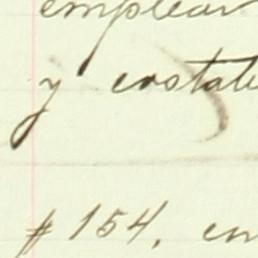 emplear
y costate
# 154, en